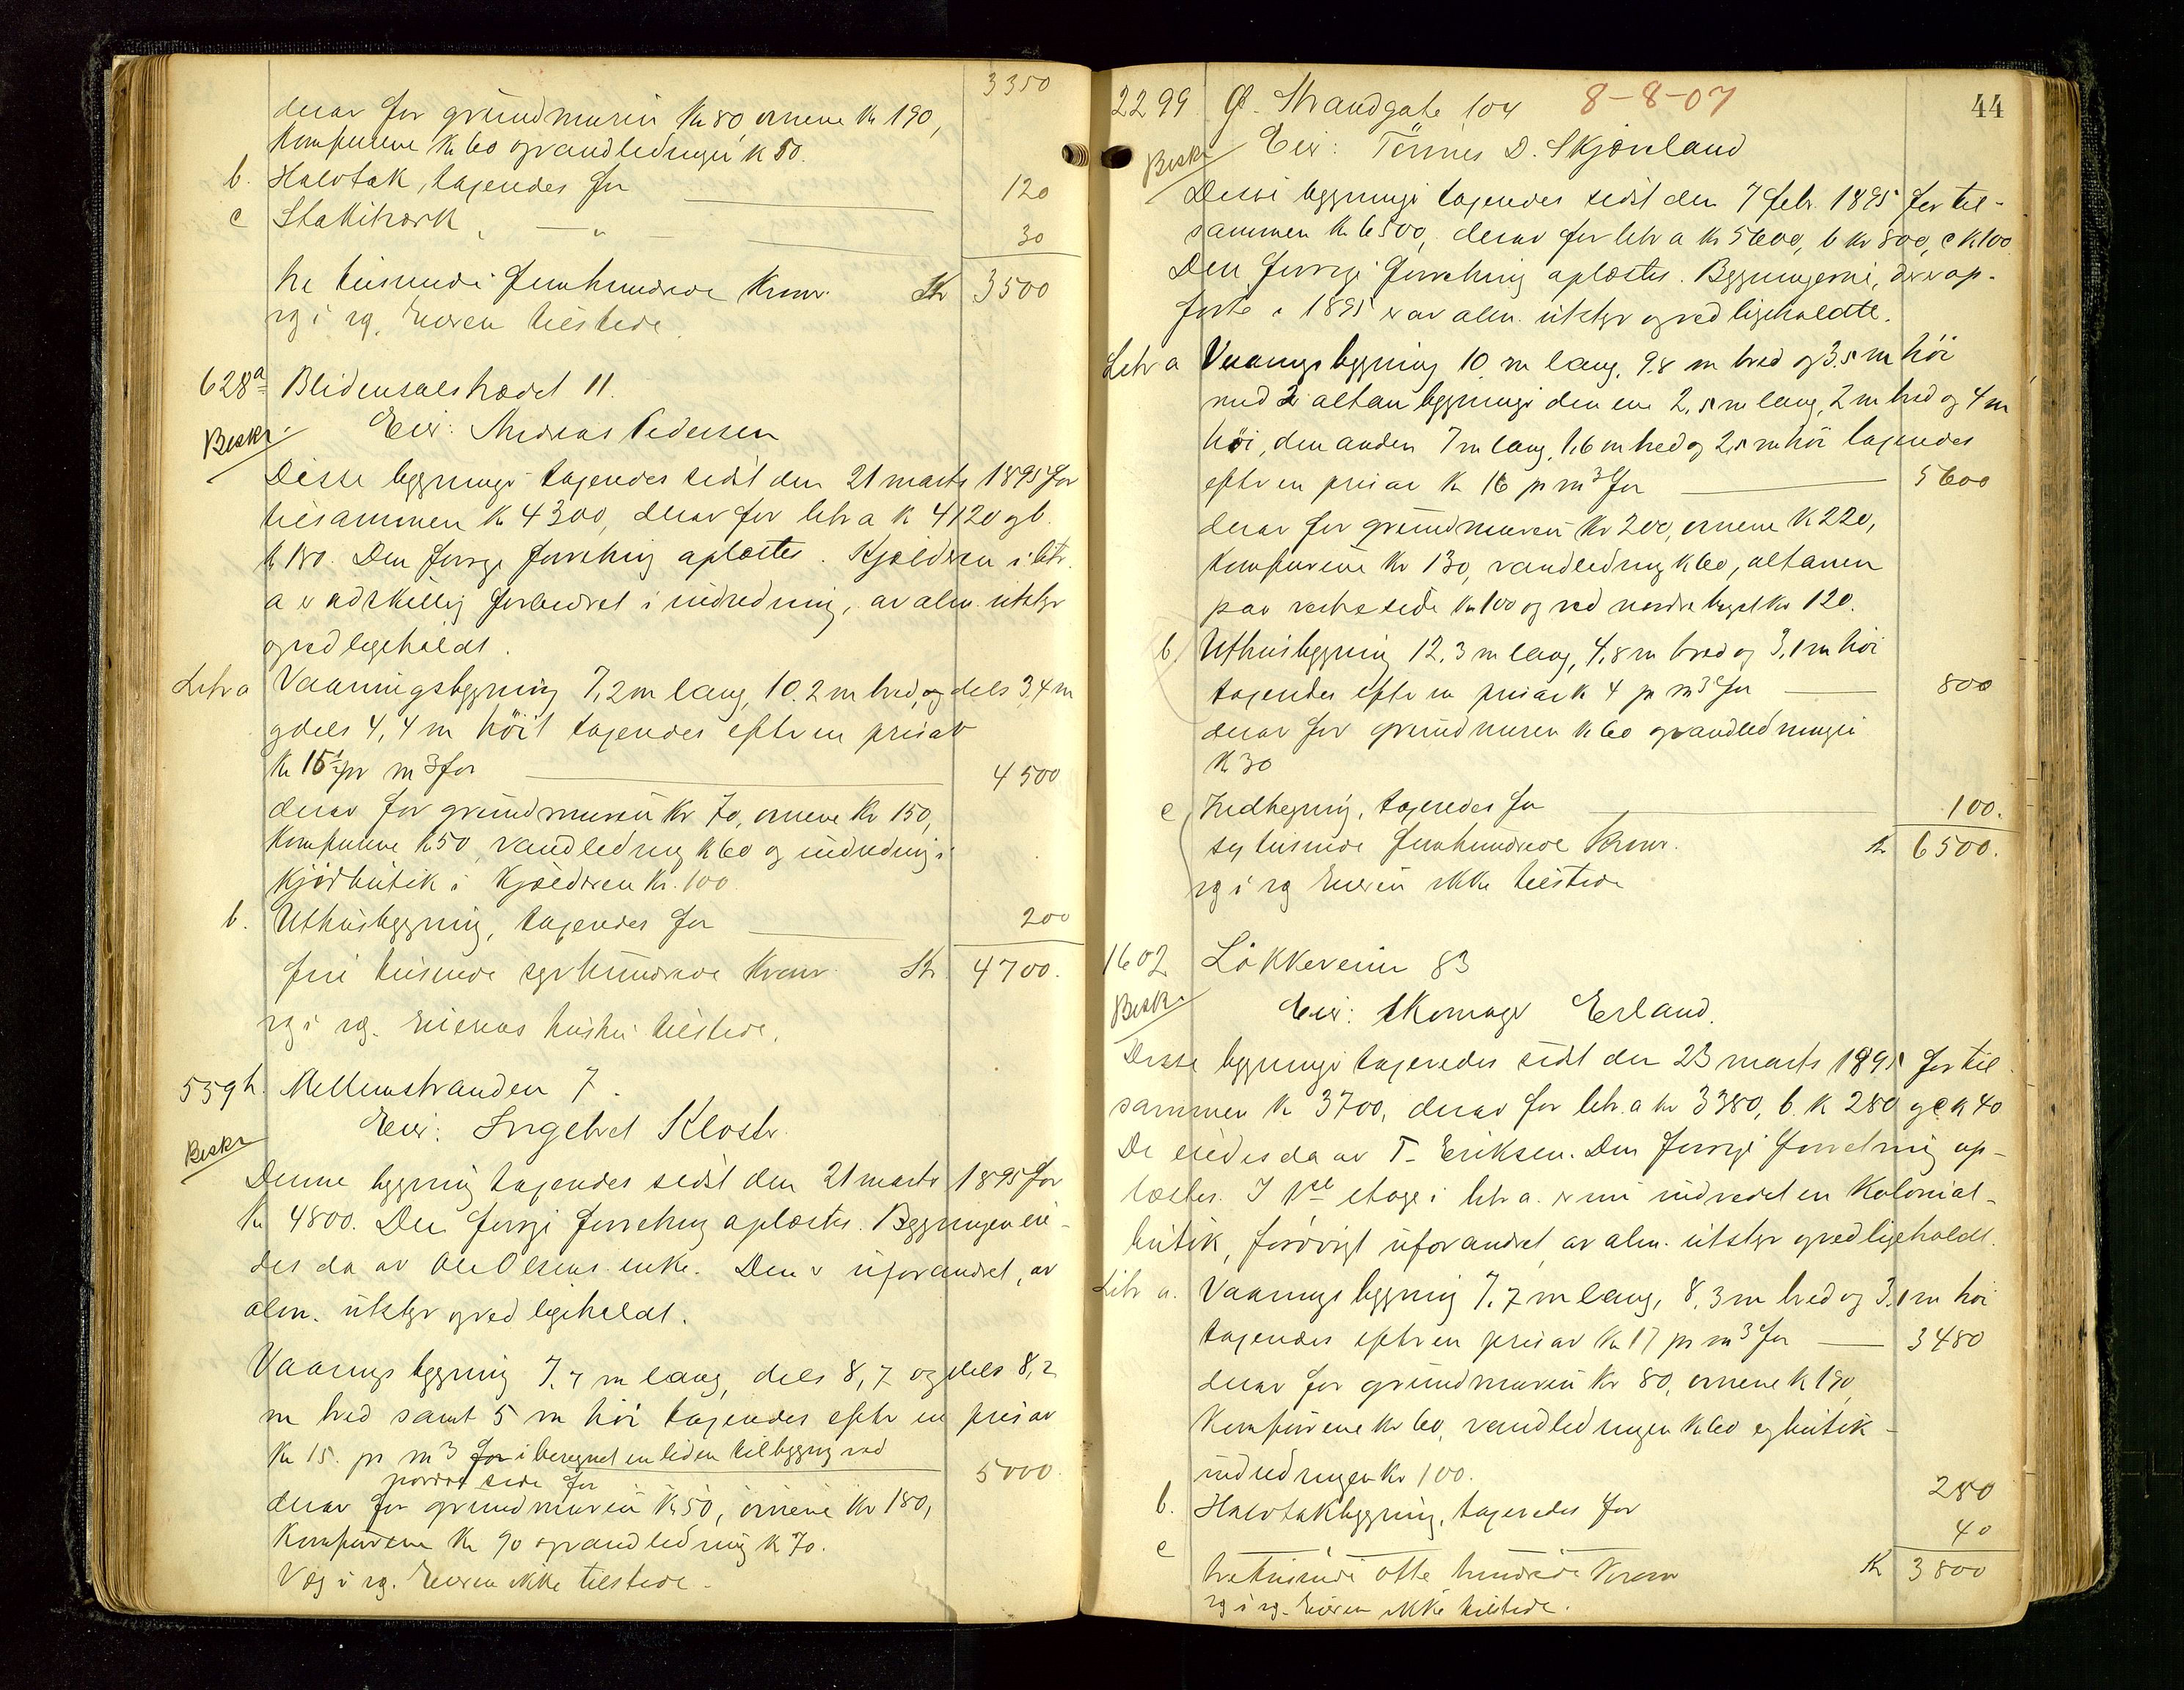 3350
derav for grundmuren Kr 80, ovnene Kr 190,
Komfurene Kr 60 og vandledningen K 50.
b. Halvtak, taxeredes for 120
c Stakitværk, — „ — 30
tre tusinde femhundrede Kroner. Kr 3500
væg i væg. Eieren tilstede
628a Blidensolstrædet 11.
Beskr. Eier: Andreas Pedersen
Disse bygninger taxeredes sidst den 21 marts 1895 for
tilsammen Kr 4300, derav for litr a K 4120 og b.
K 180. Den forrige forretning oplæstes. Kjælderen i litr.
a er adskillig forbedret i indredning, av alm. utstyr
og vedligeholdt.
Litr a Vaaningsbygning 7,2 m lang, 10.2 m bred, og dels 3,4 m
og dels 4,4 m höit taxeredes efter en pris av
Kr 15½ pr m3 for 4500
derav for grundmuren Kr 70, ovnene Kr 150,
Komfurene K 50, vandledning K 60 og indredning i
Kjödbutik i Kjælderen Kr. 100.
b. Uthusbygning, taxeredes for 200
fire tusinde syvhundrede Kroner. Kr. 4700.
væg i væg. Eierens hustru tilstede.
559h. Mellemstranden 7.
Beskr Eier: Ingebret Kloster.
Denne bygning taxeredes sidst den 21 marts 1895 for
Kr 4800. Den forrige forretning oplæstes. Bygningen eie-
des da av Ole Olsens enke. Den er uforandret, av
alm. utstyr og vedligeholdt.
Vaaningsbygning 7,7 m lang, dels 8,7 og dels 8,2
m bred samt 5 m höi taxeredes efter en pris av
Kr 15. pr m3 for iberegnet en liden tilbygning ved
nordre side for 5000.
derav for grundmuren K 50, ovnene Kr 180,
Komfurene Kr 90 og vandledning K 70.
Væg i væg. Eieren ikke tilstede.
44
2299 Ø. Strandgate 104 8-8-07
Beskr Eier: Tönnes D. Skjørland
Disse bygninger taxeredes sidst den 7 febr. 1895 for til-
sammen Kr 6500, derav for litr a Kr 5600, b Kr 800, c K 100
Den forrige forretning oplæstes. Bygningerne, der er op-
förte i 1895 er av alm. utstyr og vedligeholdte.
Litr a Vaaningsbygning 10 m lang, 9.8 m bred og 3.5 m höi
med 2 altanbygninger den ene 2,5 m lang, 2 m bred og 4 m
höi, den anden 7 m lang, 1,6 m bred og 2,5 m höi taxeredes
efter en pris av Kr 16 pr m3 for 5600
derav for grundmuren Kr 200, ovnene K 220,
Komfurene Kr 130, vandledning K 60, altanen
paa vestre side Kr 100 og ved nordre bygst Kr 120.
b. Uthusbygning 12,3 m lang, 4,8 m bred og 3,1 m höi
taxeredes efter en pris av K 4 pr m3 for 800
derav for grundmuren K 60 og vandledningen
K 30
c Indhegning, taxeredes for 100.
sex tusinde femhundrede Kroner. Kr 6500.
væg i væg Eieren ikke tilstede
1602 Lökkeveien 83
Beskr Eier: Skomager Erland.
Disse bygninger taxeredes sidst den 23 marts 1895 for til
sammen Kr 3700, derav for litr. a Kr 3380, b. K 280 og c K 40
De eiedes da av T. Eriksen. Den forrige forretning op-
læstes. I 1ste etage i litr a. er nu indredet en Kolonial-
butik, forövrigt uforandret, av alm. utstyr og vedligeholdt.
Litr a. Vaaningsbygning 7,7 m lang, 8,3 m bred og 3,1 m höi
taxeredes efter en pris av Kr 17 pr m3 for 3480
derav for grundmuren Kr 80, ovnene K 190,
Komfurene Kr 60, vandledningen K 60 og butik-
indredningen Kr 100.
b. Halvtakbygning, taxeredes for 280
c 40
tretusinde otte hundrede Kroner Kr 3800
væg i væg. Eieren ikke tilstede.